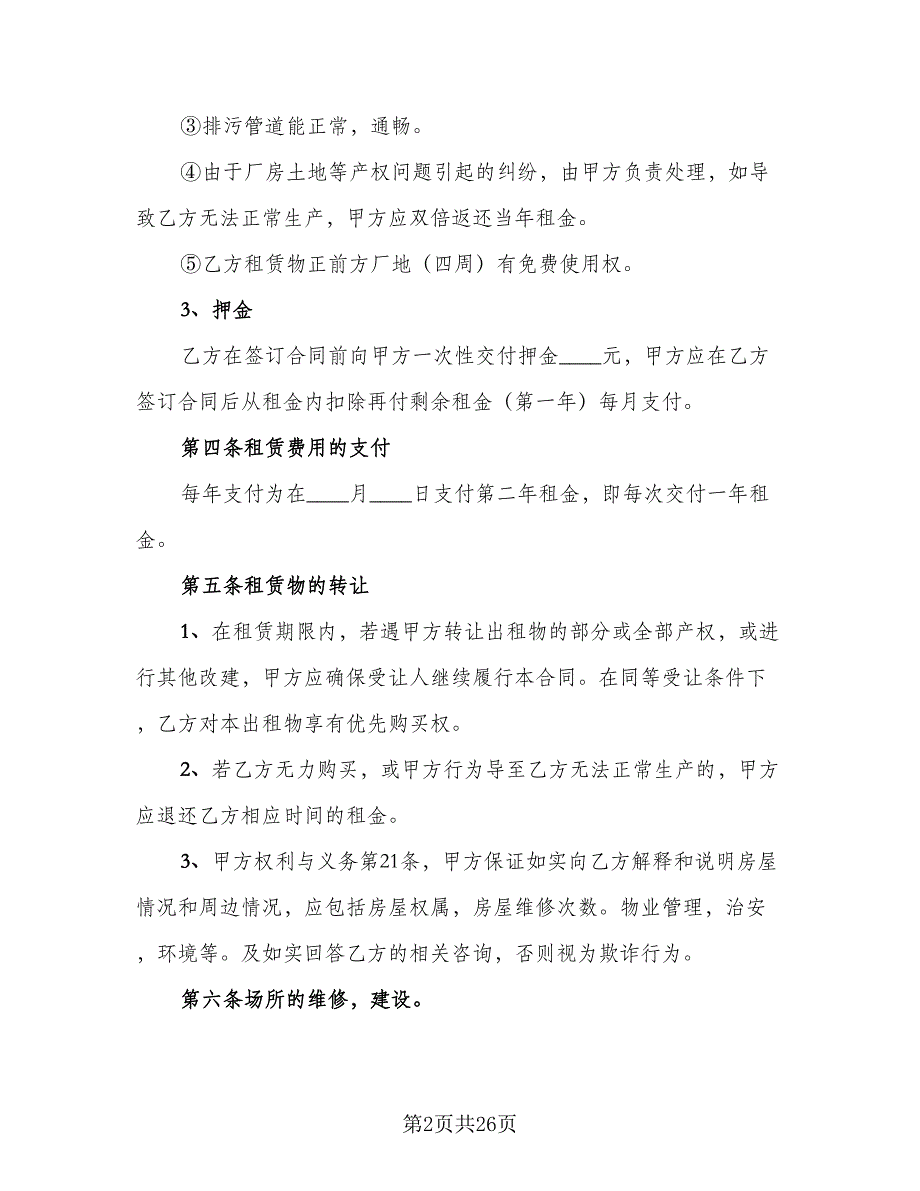 ③排污管道能正常，通畅。
④由于厂房土地等产权问题引起的纠纷，由甲方负责处理，如导
致乙方无法正常生产，甲方应双倍返还当年租金。
⑤乙方租赁物正前方厂地（四周）有免费使用权。
3、押金
乙方在签订合同前向甲方一次性交付押金____元，甲方应在乙方
签订合同后从租金内扣除再付剩余租金（第一年）每月支付。
第四条租赁费用的支付
每年支付为在____月____日支付第二年租金，即每次交付一年租
金。
第五条租赁物的转让
1、在租赁期限内，若遇甲方转让出租物的部分或全部产权，或进
行其他改建，甲方应确保受让人继续履行本合同。在同等受让条件下
，乙方对本出租物享有优先购买权。
2、若乙方无力购买，或甲方行为导至乙方无法正常生产的，甲方
应退还乙方相应时间的租金。
3、甲方权利与义务第21条，甲方保证如实向乙方解释和说明房屋
情况和周边情况，应包括房屋权属，房屋维修次数。物业管理，治安
，环境等。及如实回答乙方的相关咨询，否则视为欺诈行为。
第六条场所的维修，建设。
第2页共26页